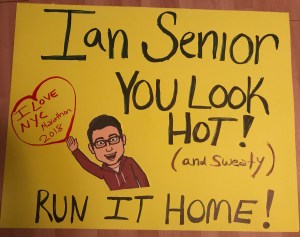 Ian Senior
YOU LOOK
HOT!
(and Sweaty)
I LOVE
NYC
Marathon
2018
RUN IT HOME!